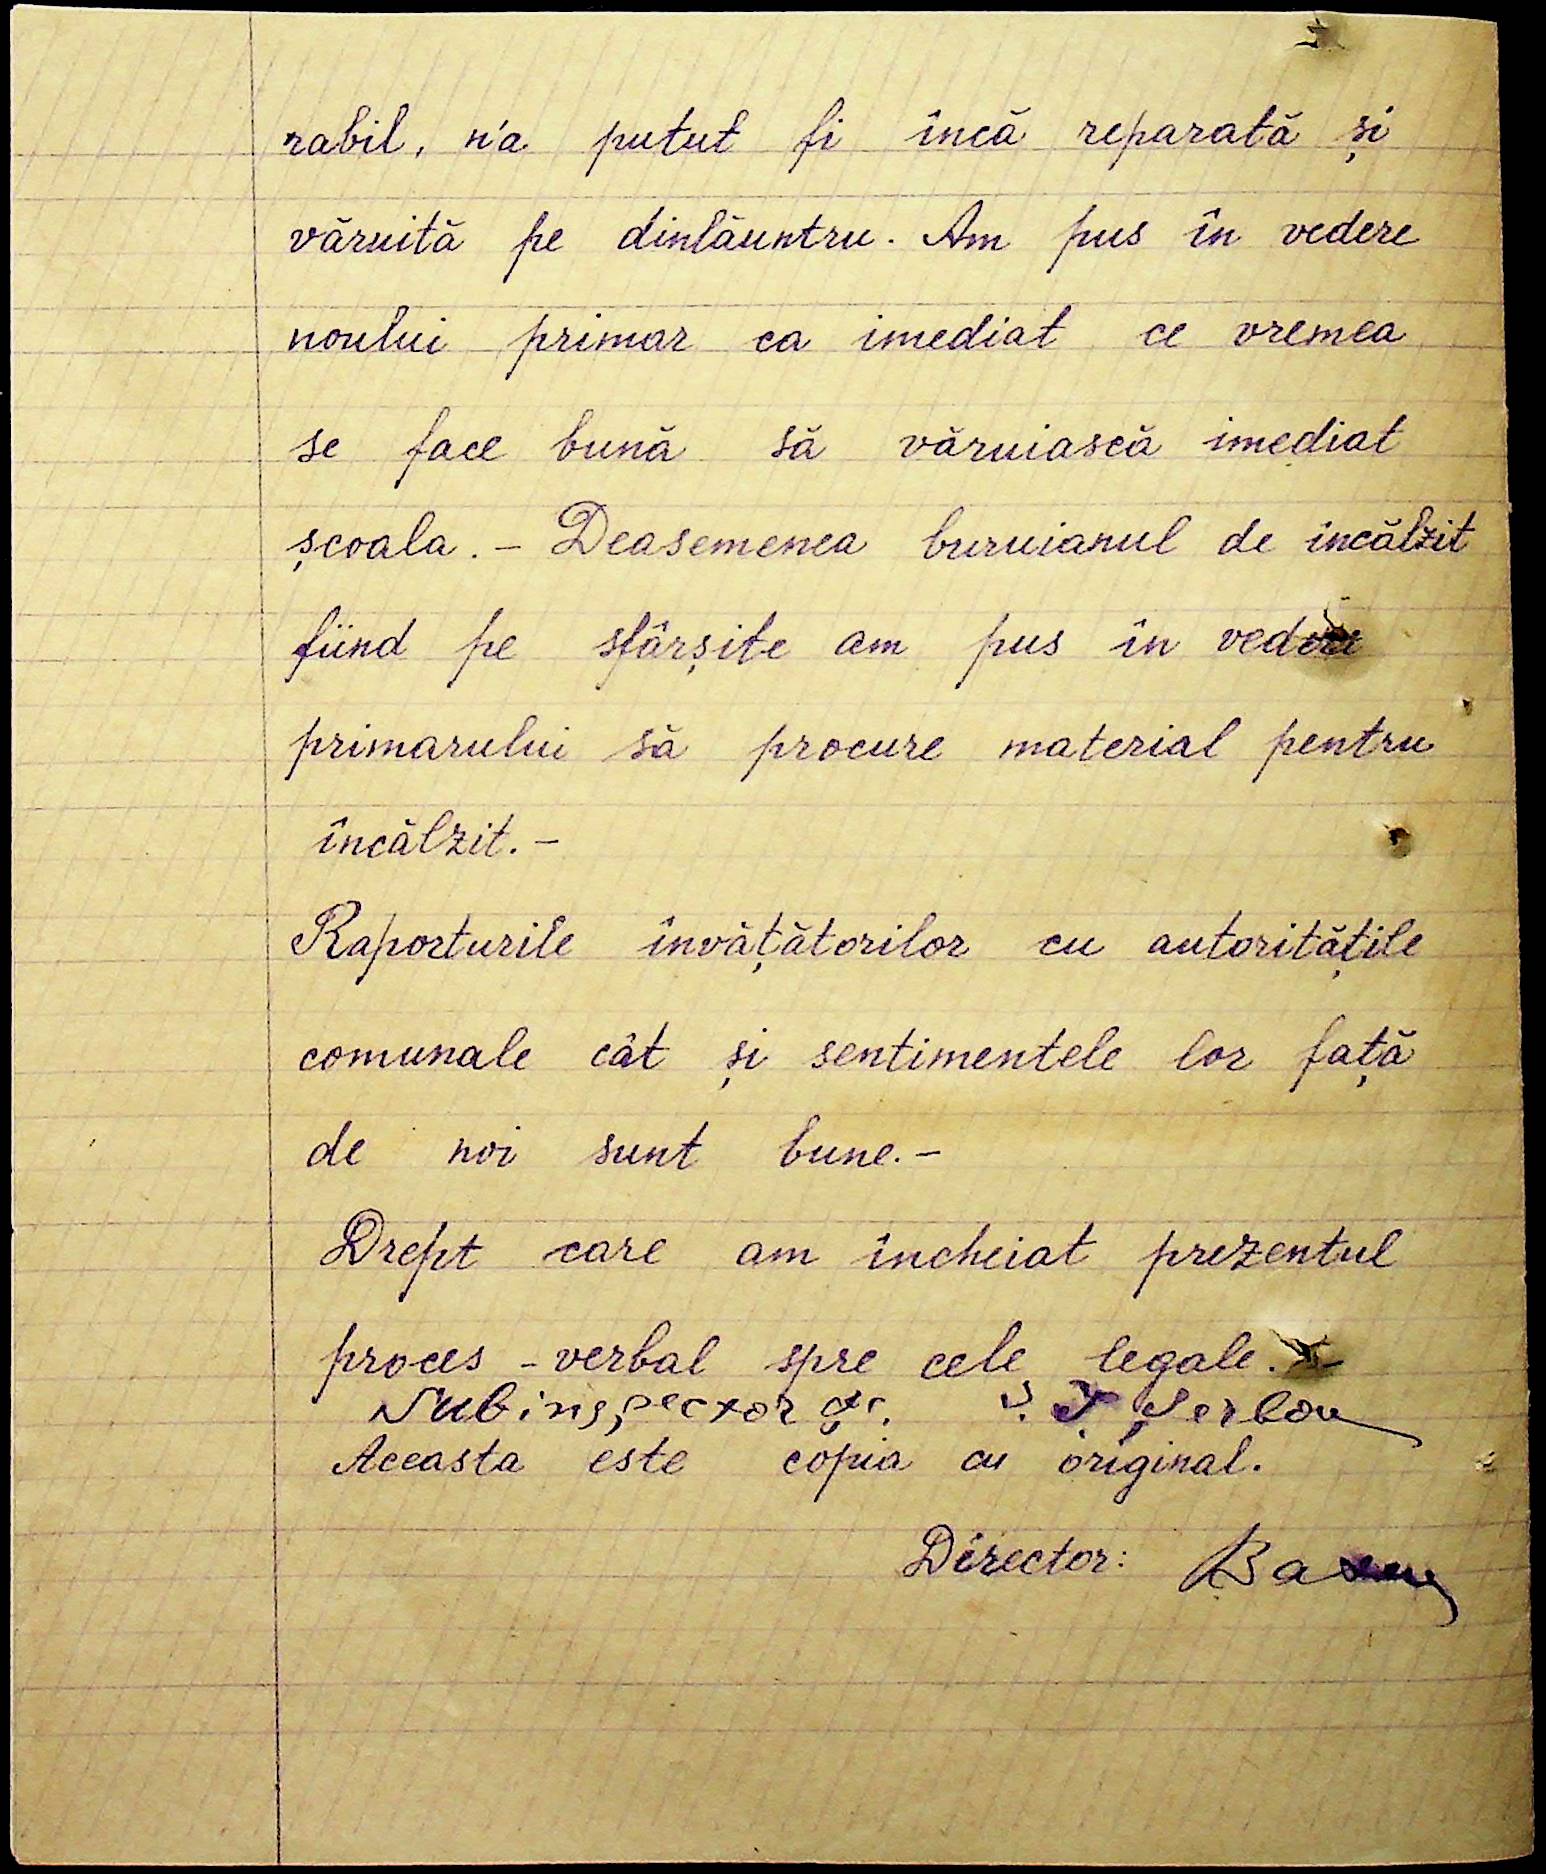 rabil, n'a putut fi încă reparată și
văruită pe dinlăuntru. Am pus în vedere
noului primar ca imediat ce vremea
se face bună să văruiască imediat
școala. - Deasemenea buruianul de încălzit
fiind pe sfârșite am pus în vedere
primarului să procure material pentru
încălzit. -
Raporturile învățătorilor cu autoritățile
comunale cât și sentimentele lor față
de noi sunt bune. -
Drept care am încheiat prezentul
proces - verbal spre cele legale. -
Subinspector șc. Șerban
Aceasta este copia cu original.
Director: